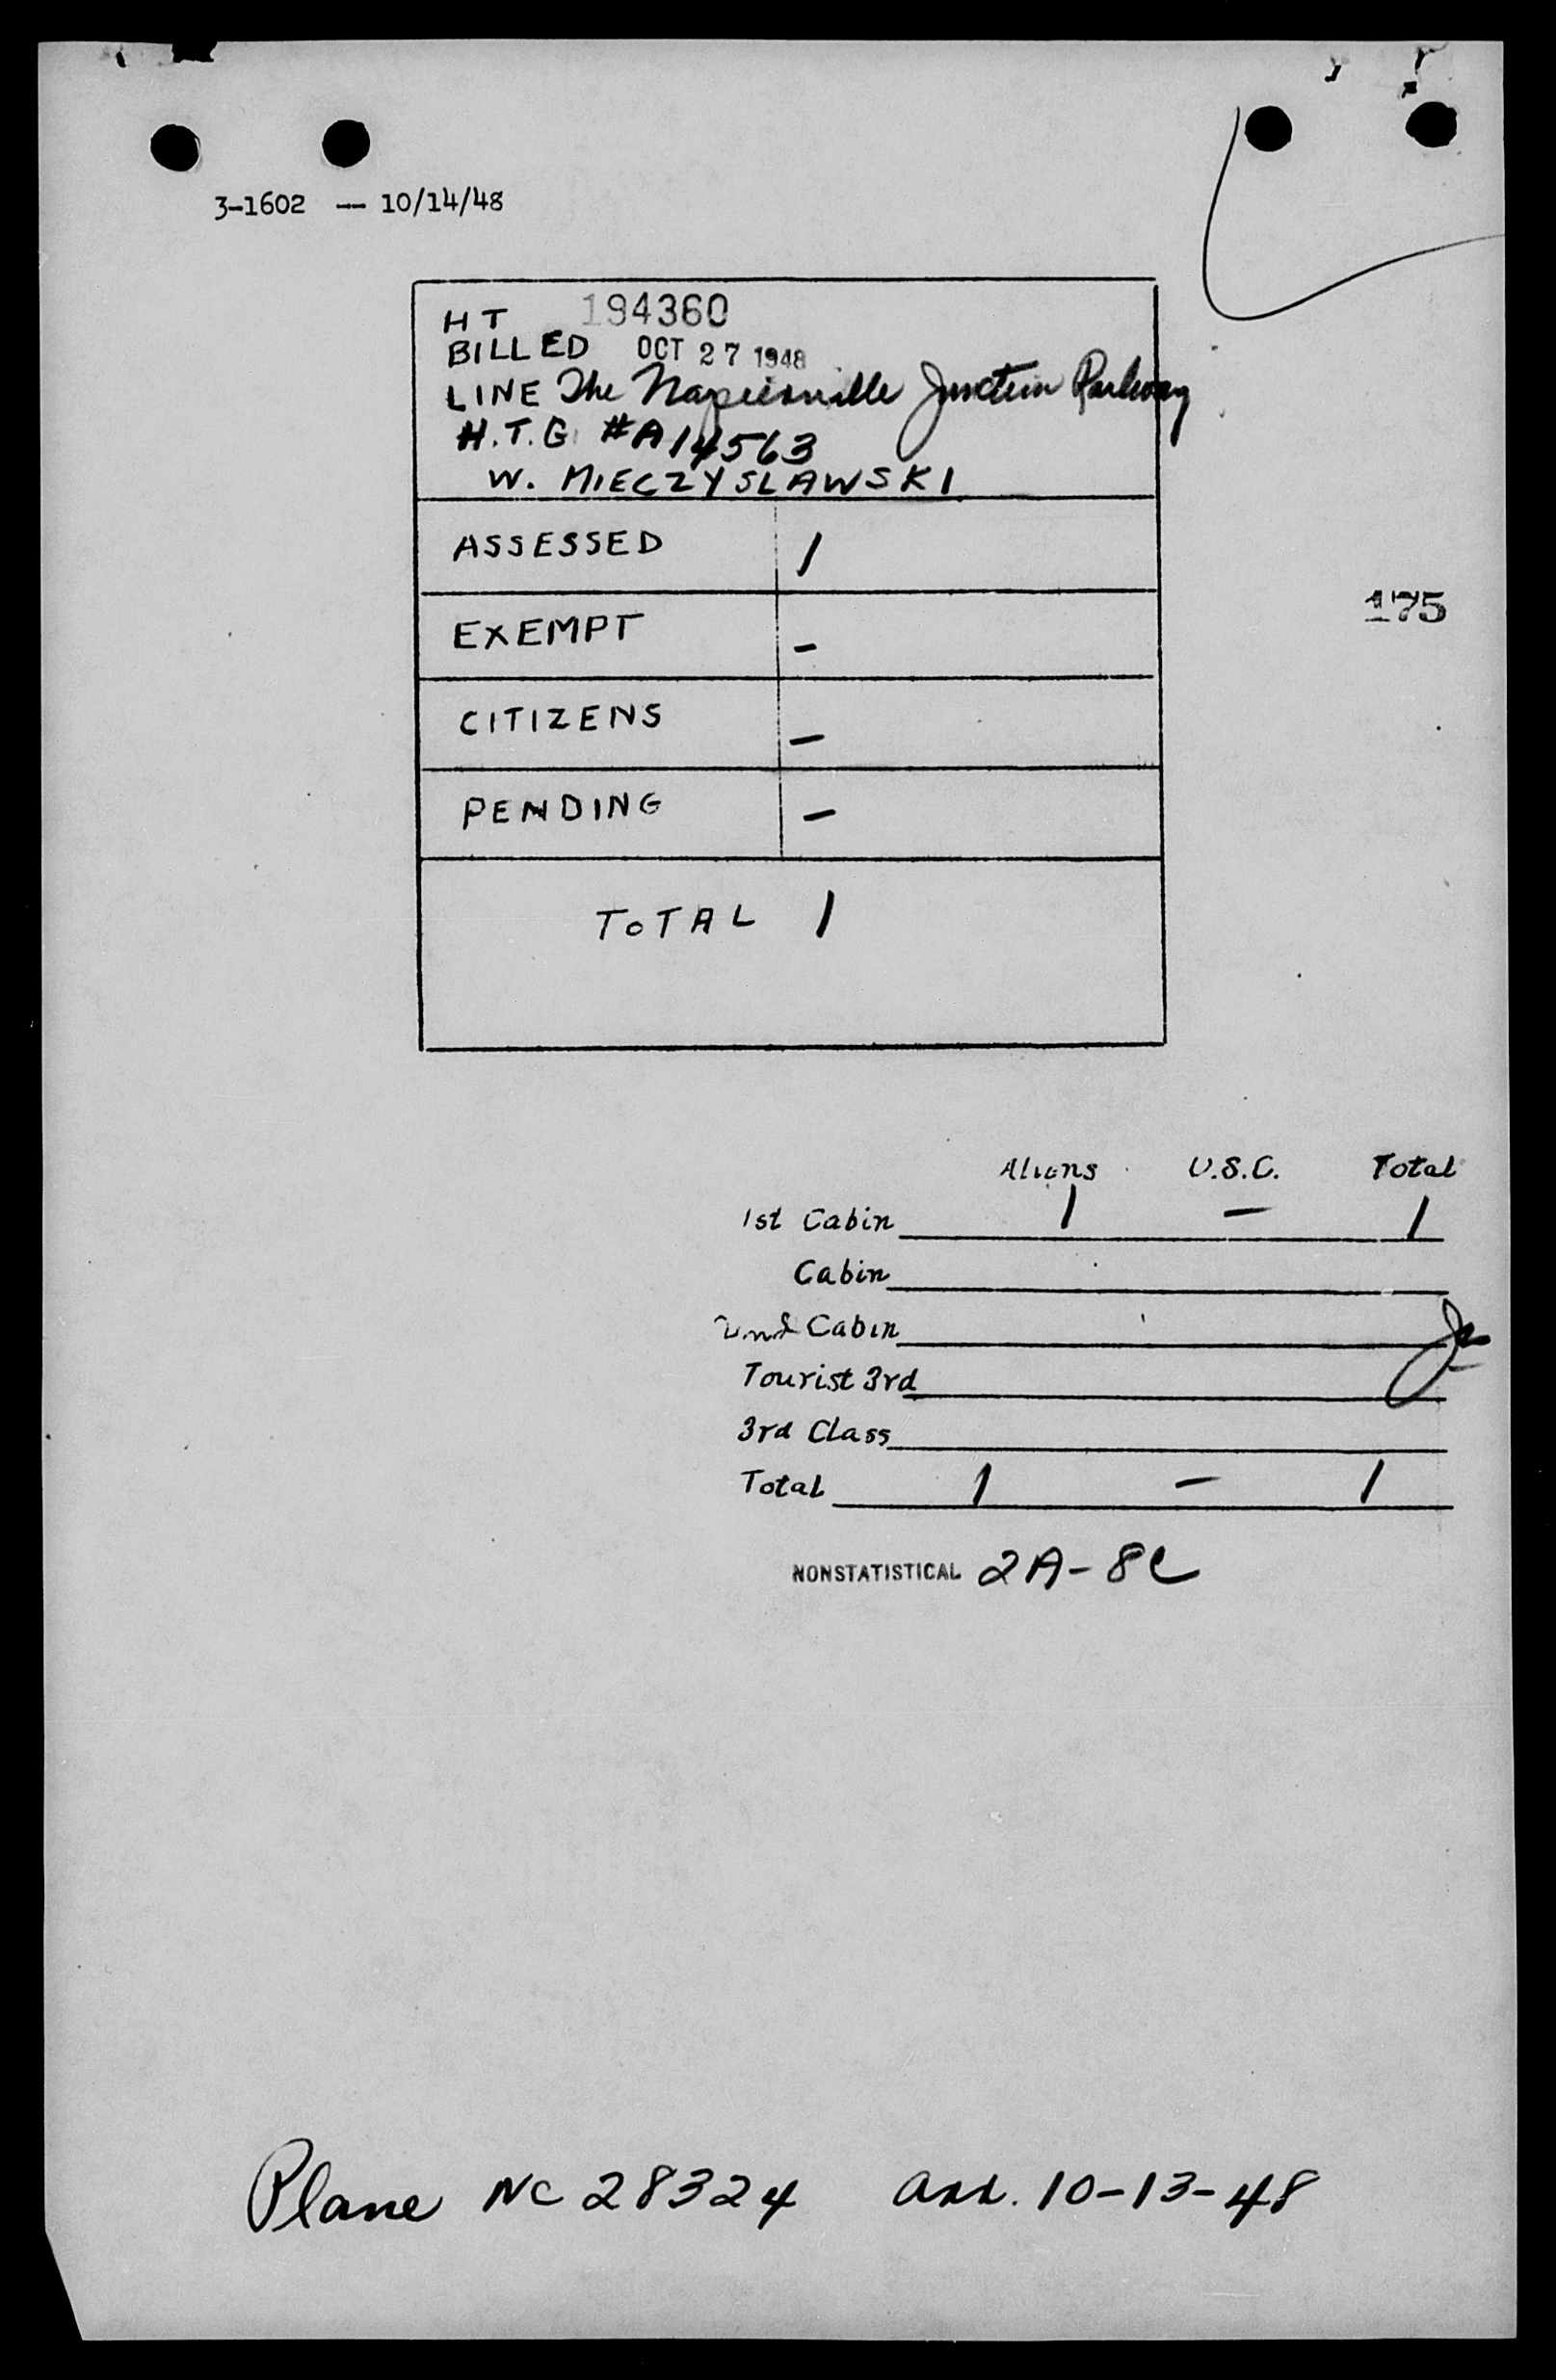 3-1602 -- 10/14/48
HT 194360
BILLED OCT 27 1948
LINE The Napierville Junction Railway
H.T.G. #A14563
W. MIECZYSLAWSKI
ASSESSED 1
EXEMPT -
175
CITIZENS -
PENDING -
TOTAL 1
Aliens U.S.C. Total
1st Cabin 1 - 1
Cabin
2nd Cabin
Tourist 3rd
3rd Class
Total 1 - 1
NONSTATISTICAL 2A-8C
Plane NC 28324 arr. 10-13-48